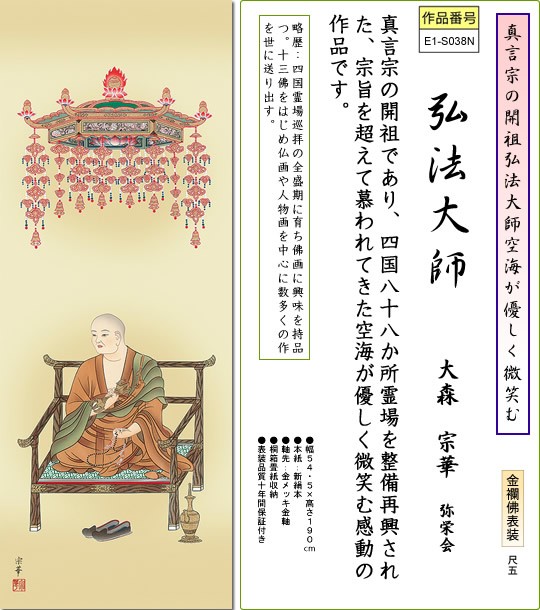 真言宗の開祖弘法大師空海が優しく微笑む
金襴佛表装
尺五
作品番号
E1-S038N
弘法大師
大森 宗華 弥栄会
真言宗の開祖であり、四国八十八か所霊場を整備再興され
た、宗旨を超えて慕われてきた空海が優しく微笑む感動の
作品です。
略歴：四国霊場巡拝の全盛期に育ち佛画に興味を持品
つ。十三佛をはじめ仏画や人物画を中心に数多くの作
を世に送り出す。
●幅５４・５×高さ１９０cm
●本紙：新絹本
●軸先：金メッキ金軸
●桐箱畳紙収納
●表装品質十年間保証付き
宗華